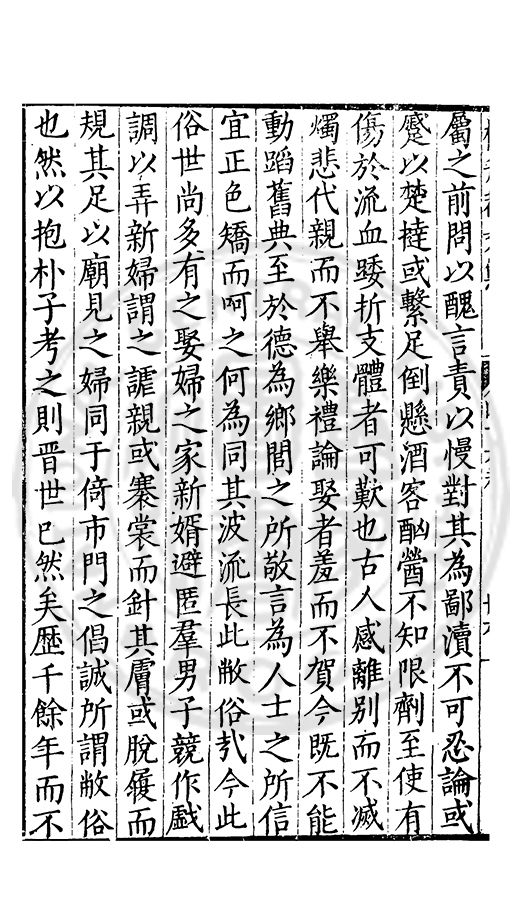 屬之前問以醜言責以慢對其為鄙瀆不可忍論或
蹙以楚撻或繫足倒懸酒客酗醟不知限劑至使有
傷於流血踒折支體者可歎也古人感離別而不滅
燭悲代親而不舉樂禮論娶者羞而不賀今既不能
動蹈舊典至於德為鄉閭之所敬言為人士之所信
宜正色矯而呵之何為同其波流長此敝俗哉今此
俗世尚多有之娶婦之家新婿避匿羣男子競作戲
調以弄新婦謂之謔親或褰裳而針其膚或脫履而
規其足以廟見之婦同于倚市門之倡誠所謂敝俗
也然以抱朴子考之則晉世已然矣歷千餘年而不